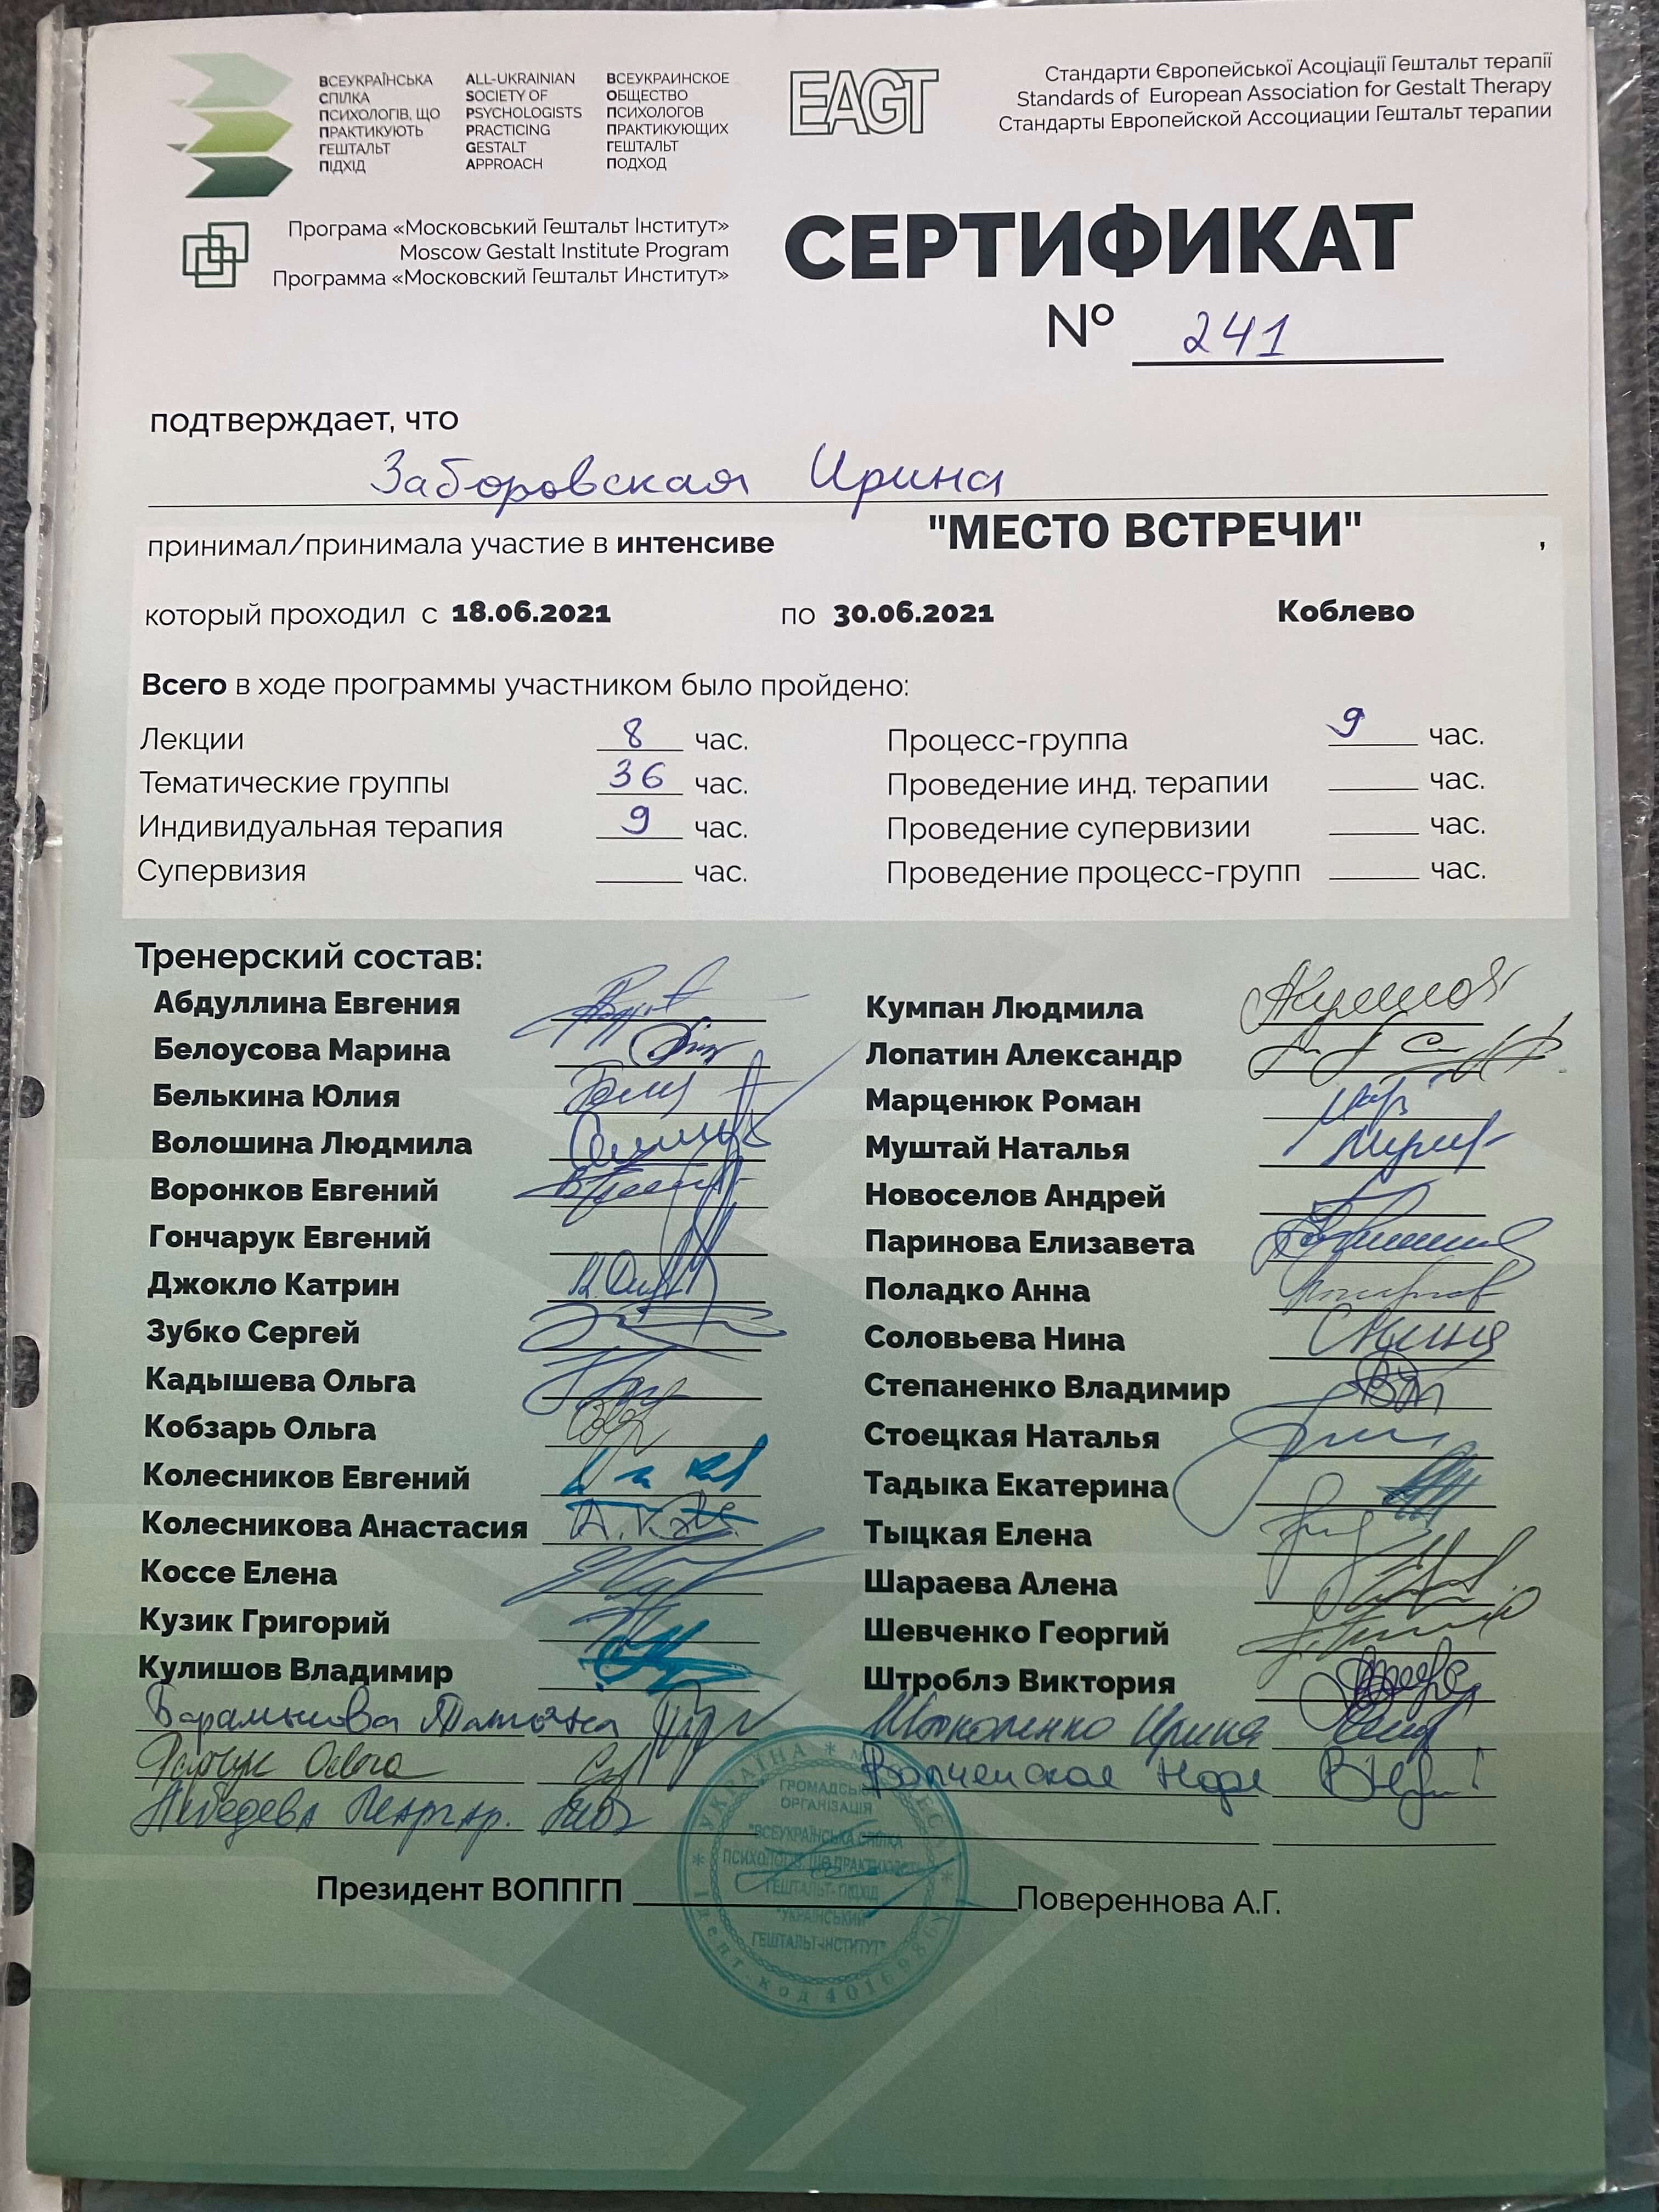 ВСЕУКРАЇНСЬКА
СПІЛКА
ПСИХОЛОГІВ, ЩО
ПРАКТИКУЮТЬ
ГЕШТАЛЬТ
ПІДХІД
ALL-UKRAINIAN
SOCIETY OF
PSYCHOLOGISTS
PRACTICING
GESTALT
APPROACH
ВСЕУКРАИНСКОЕ
ОБЩЕСТВО
ПСИХОЛОГОВ
ПРАКТИКУЮЩИХ
ГЕШТАЛЬТ
ПОДХОД
EAGT
Стандарти Європейської Асоціації Гештальт терапії
Standards of European Association for Gestalt Therapy
Стандарты Европейской Ассоциации Гештальт терапии
Програма «Московський Гештальт Інститут»
Moscow Gestalt Institute Program
Программа «Московский Гештальт Институт»
СЕРТИФИКАТ
№ 241
подтверждает, что
Заборовская Ирина
принимал/принимала участие в интенсиве "МЕСТО ВСТРЕЧИ" ,
который проходил с 18.06.2021 по 30.06.2021 Коблево
Всего в ходе программы участником было пройдено:
Лекции 8 час. Процесс-группа 9 час.
Тематические группы 36 час. Проведение инд. терапии час.
Индивидуальная терапия 9 час. Проведение супервизии час.
Супервизия час. Проведение процесс-групп час.
Тренерский состав:
Абдуллина Евгения Кумпан Людмила
Белоусова Марина Лопатин Александр
Белькина Юлия Марценюк Роман
Волошина Людмила Муштай Наталья
Воронков Евгений Новоселов Андрей
Гончарук Евгений Паринова Елизавета
Джокло Катрин Поладко Анна
Зубко Сергей Соловьева Нина
Кадышева Ольга Степаненко Владимир
Кобзарь Ольга Стоецкая Наталья
Колесников Евгений Тадыка Екатерина
Колесникова Анастасия Тыцкая Елена
Коссе Елена Шараева Алена
Кузик Григорий Шевченко Георгий
Кулишов Владимир Штроблэ Виктория
Татьяна Ирина
Ольга
Лебедева
Президент ВОППГП Повереннова А.Г.
УКРАЇНА
ГРОМАДСЬКА
ОРГАНІЗАЦІЯ
"ВСЕУКРАЇНСЬКА СПІЛКА
ПСИХОЛОГІВ, ЩО ПРАКТИКУЮТЬ
ГЕШТАЛЬТ-ПІДХІД
"УКРАЇНСЬКИЙ
ГЕШТАЛЬТ-ІНСТИТУТ"